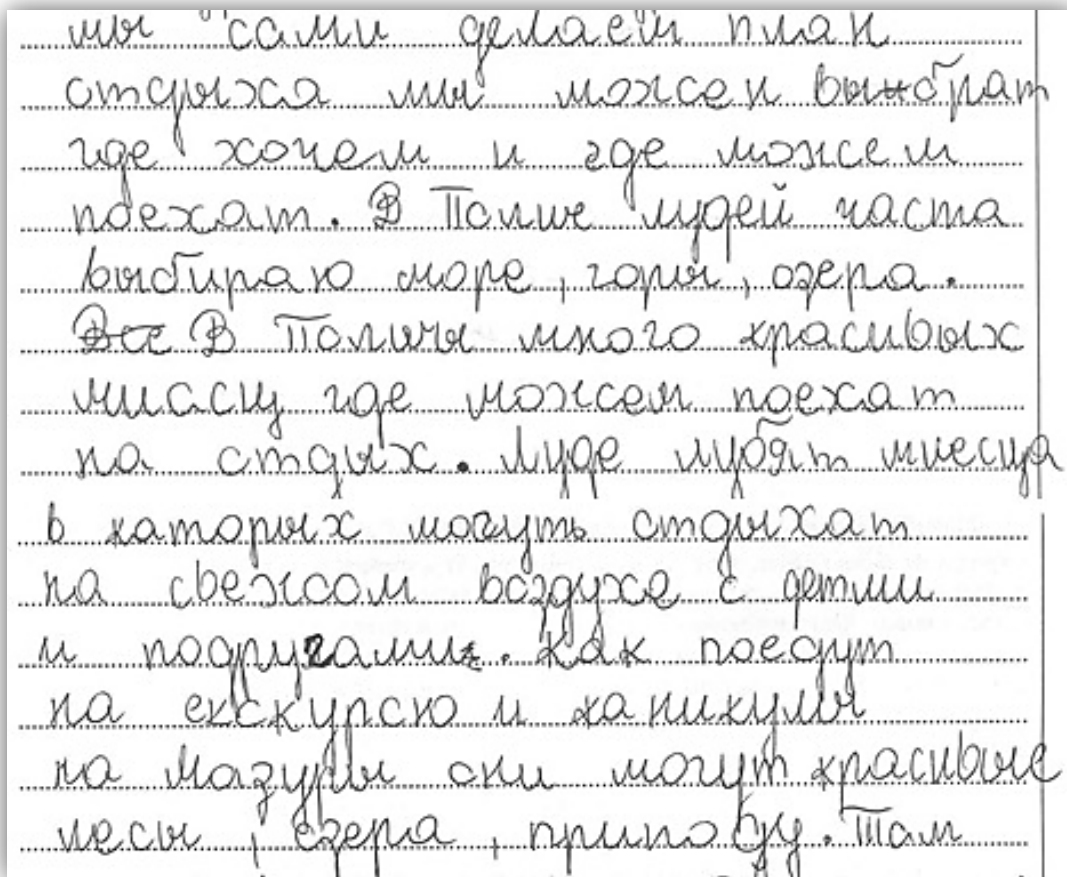 мы сами делаем план
отдыха мы можем выбрат
где хочем и где можем
поехат. В Полше лудей часта
выбираю море, горы, озера.
Все В Полшы много красивых
миасц где можем поехат
на отдых. Луде лубят миесца
в каторых могуть отдыхат
на свежом воздухе с детми
и подругами. Как поедут
на екскурсю и каникулы
на Мазуры они могут красивые
лесы, езера, Там